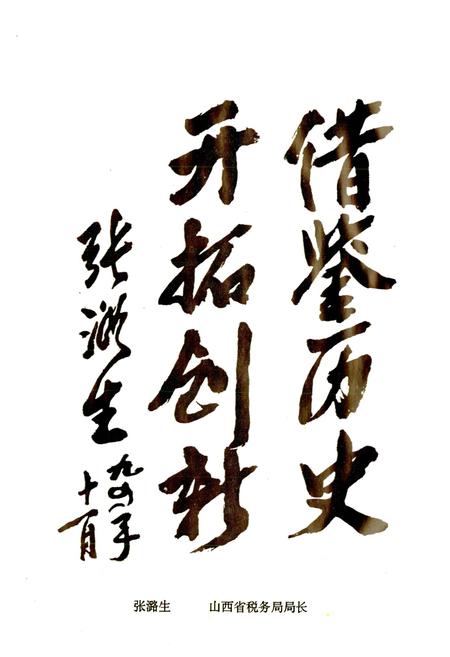 借鉴历史
开拓创新
张潞生
九四年
十一月
张潞生 山西省税务局局长